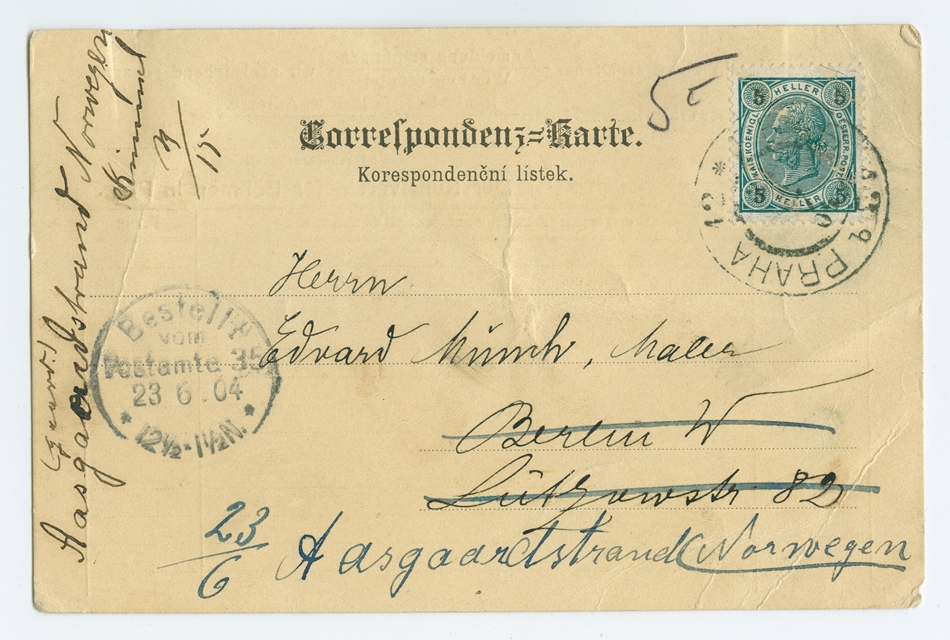 Correspondenz-Karte.
Korespondenční lístek.
5
5 HELLER 5
KAIS. KOENIGL. OESTERR. POST.
5 HELLER 5
PRAHA
Herrn
Edvard Münch, Maler
Berlin W
Lützowstr. 82
23/6 Aasgaardstrand (Norwegen
Bestellt
vom
Postamte 35
23 6 04
12½-1½N.
Aasgaardstrand Norwegen